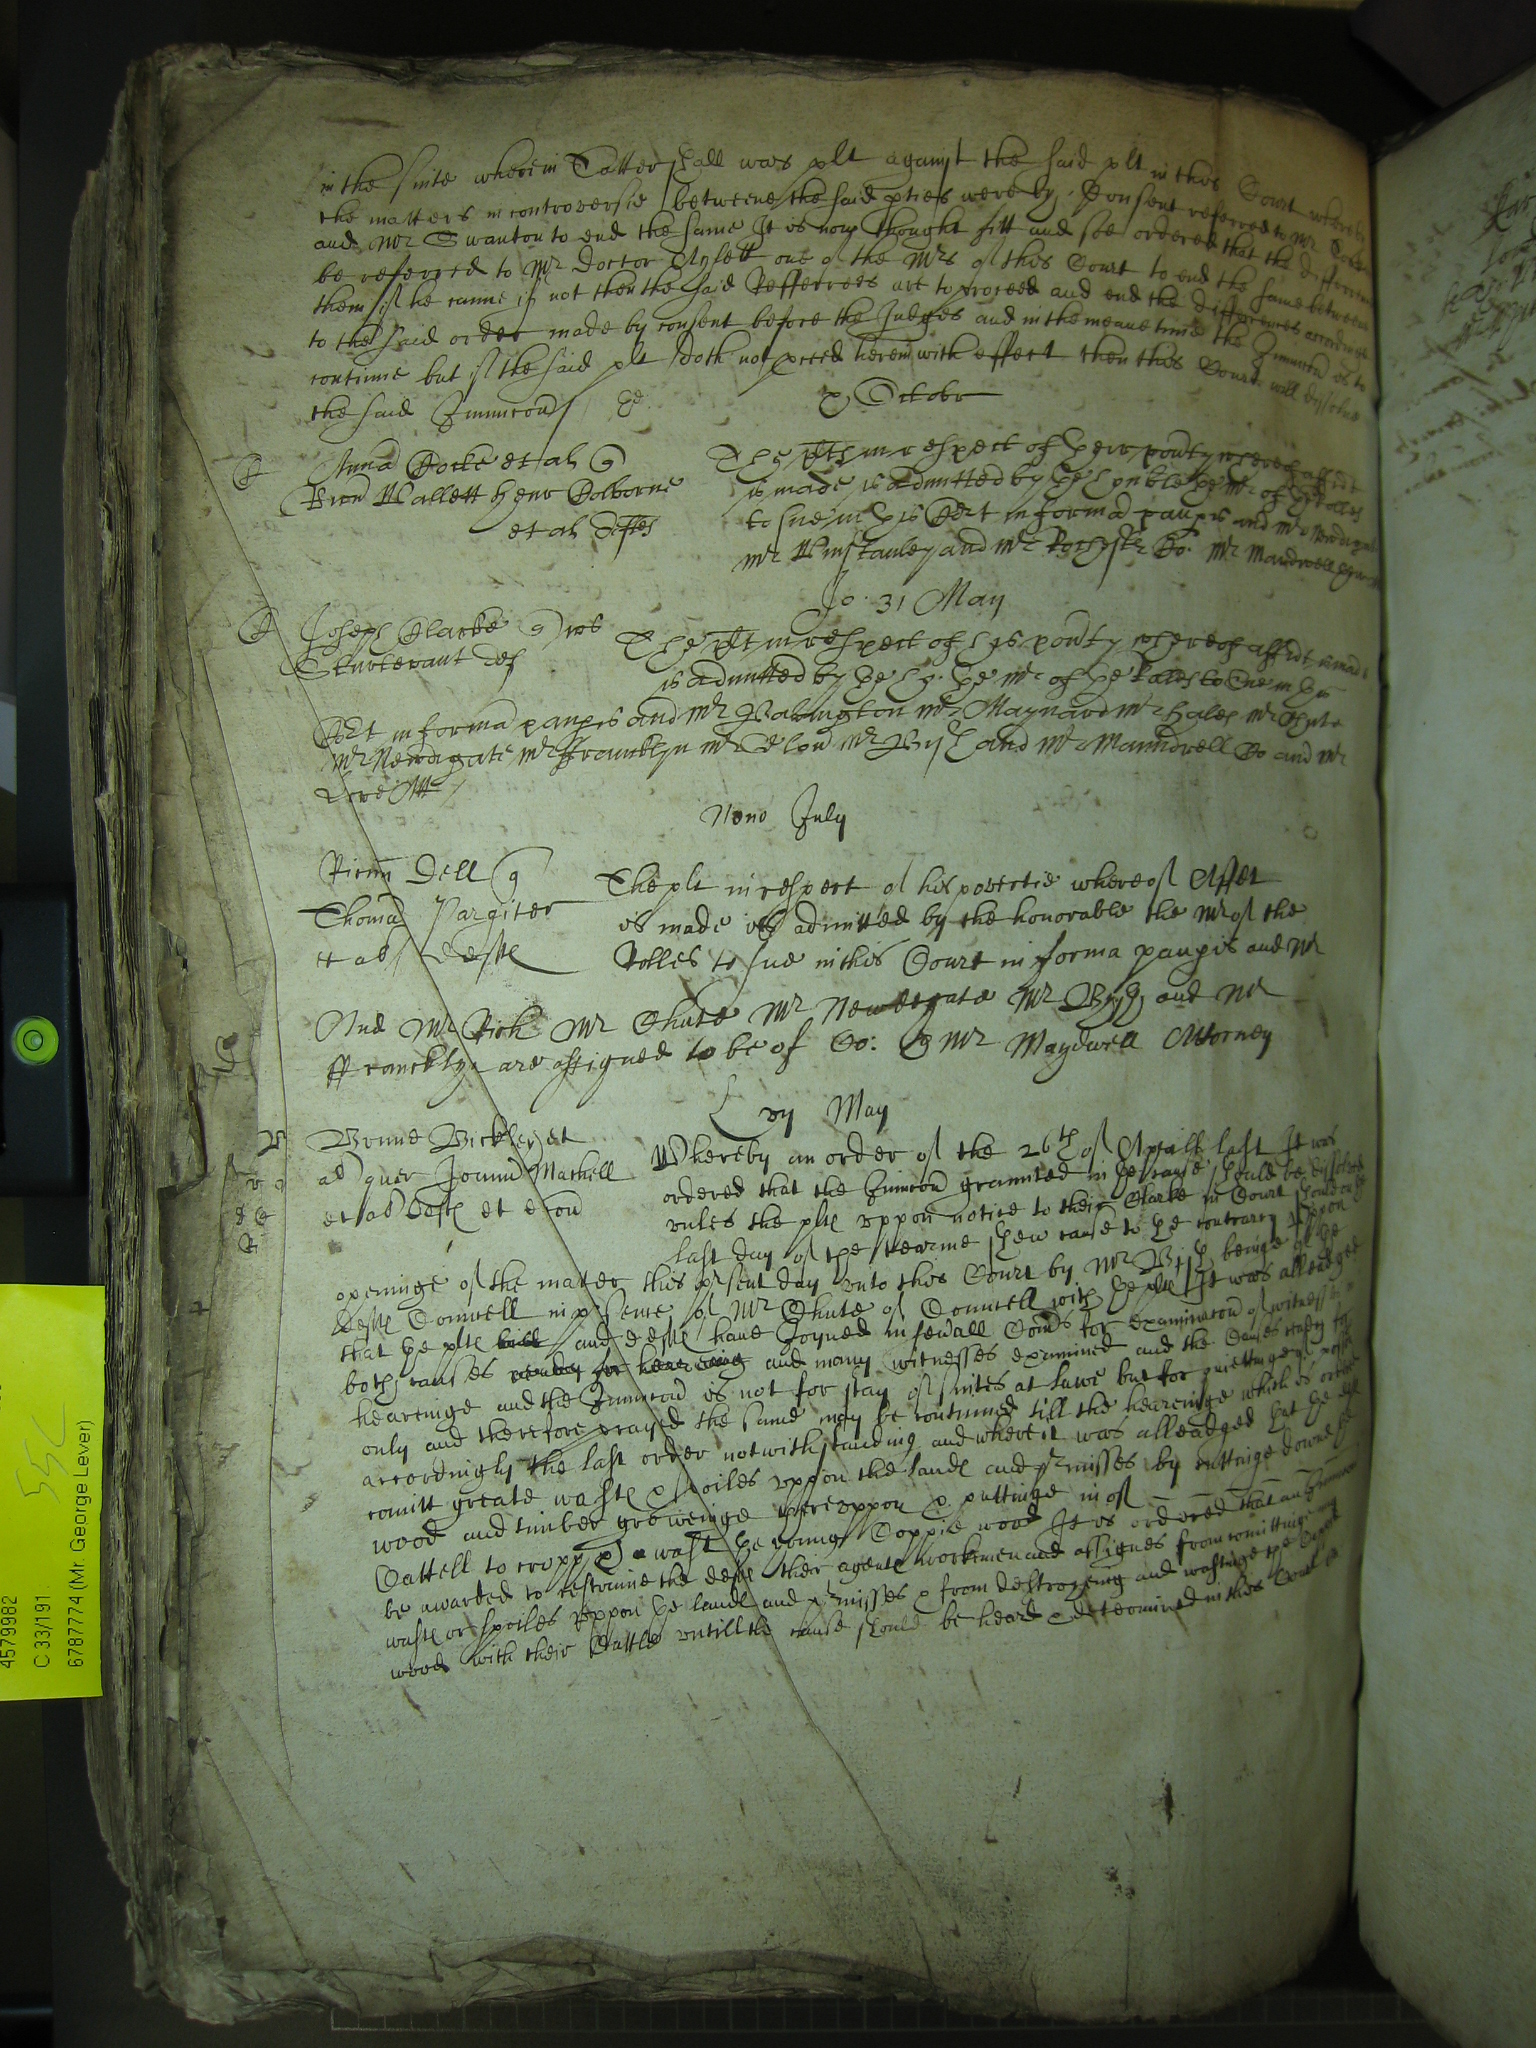 in the suite wherein Tattershall was plt against the said plt in this Court whereby
the matters in controversie betweene the said pties were by Consent referred to Mr
and Mr Swanton to end the same It is now thought fitt and soe ordered that the differences
be referred to Mr Doctor Aylett one of the Mrs of this Court to end the same betweene
them if he canne if not then the said Refferrees are to proceed and end the differences according
to the said order made by consent before the Judges and in the meane time the Iniunccon is to
continue but if the said plt doth not pceed herein with effect then this Court will dissolve
the said Iniunccon
x Octobr
Anna Cocke et al
Ricum Wallett Henr Colborne
et al deftes
The plts in respect of their povty whereof affidt
is made is admitted by the honble the Mr of the Rolles
to sue in this Cort in forma paupis and Mr Newdigate
Mr Winstanley and Mr Co: Mr Maudwell
Jo: 31 May
Joseph Clarke
Sturtevant def
The plt in respect of his povty whereof affidt is made
is admitted by the the Mr of the Rolles to Sue in this
Cort in forma paupis and Mr Mr Maynard Mr Hales Mr Chute
Mr Newdigate Mr Francklyn Mr Mr Bysh and Mr Maundrell Co and Mr
Att
Nono July
Ricum Dell
Thomas Pargiter
et al defte
The plt in respect of his povertie whereof Affet
is made is admitted by the honorable the Mr of the
Rolles to sue in this Court in forma paupis and Mr
And Mr Rich Mr Chute Mr Newdegate Mr Bysh and Mr
ffrancklyn are assigned to be of Co: Mr Maydwell Attorney
May
Brune Bickley et
al quer Johnn Machell
et al defte et e con
Whereby an order of the 26th of Aprill last It was
ordered that the Iniunccon graunted in the cause should be dissolved
unles the plte uppon notice to their Clarke in Court should on the
last day of the tearme shew cause to the contrary Uppon
openinge of the mater this psent day unto this Court by Mr Bysh beinge of the
defte Councell in psence of Mr Chute of Councell with the plte It was alleadged
that the plte and defte have Joyned in sevall Comds for examinacon of witness in
both causes and many witnesses examined and the Causes ready for
hearinge and the Iniunccon is not for stay of suites at lawe but for quiettinge of possn
only and therefore prayed the same may be continued till the hearinge which is ordered
accordingly the last order notwithstanding and where it was alleadged that the defte
comitt greate waste & spoiles uppon the lande and pmisses by cuttinge downe the
wood and timber groweinge thereuppon & puttinge in of
Cattell to cropp & wast the young Coppie wood It is ordered that an Iniunccon
be awarded to restraine the defte their agente workmen and assignes from comittinge any
waste or spoiles uppon the lande and pmisses & from destroyeing and wastinge the Coppie
wood with their Cattle untill the cause should be heard & determined in this Court
55C
4579982
C 33/191
6787774 (Mr. George Lever)